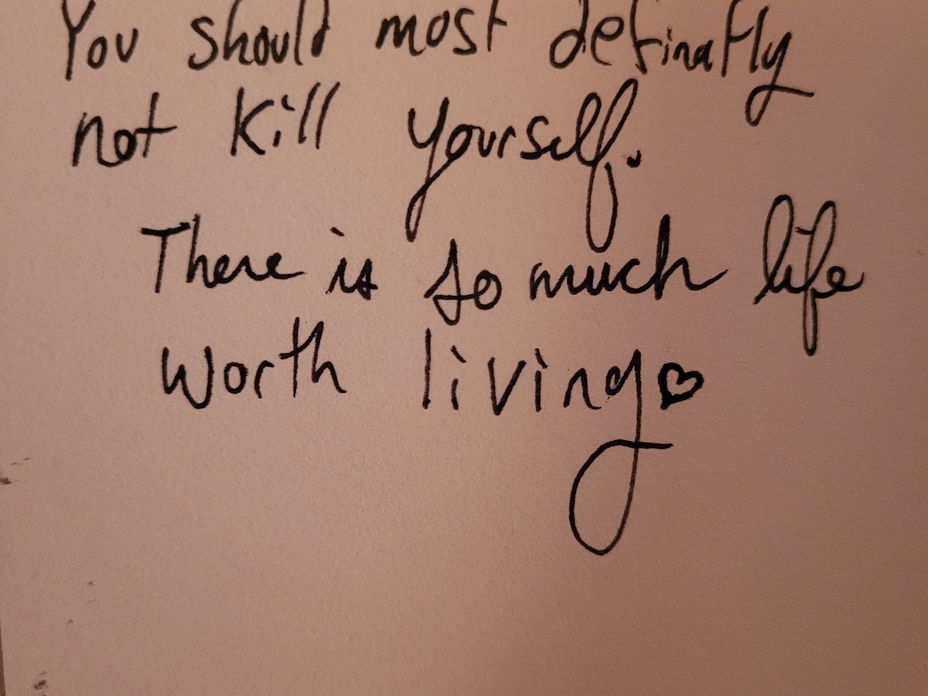 You should most definatly
not kill yourself.
There is so much life
worth living♡